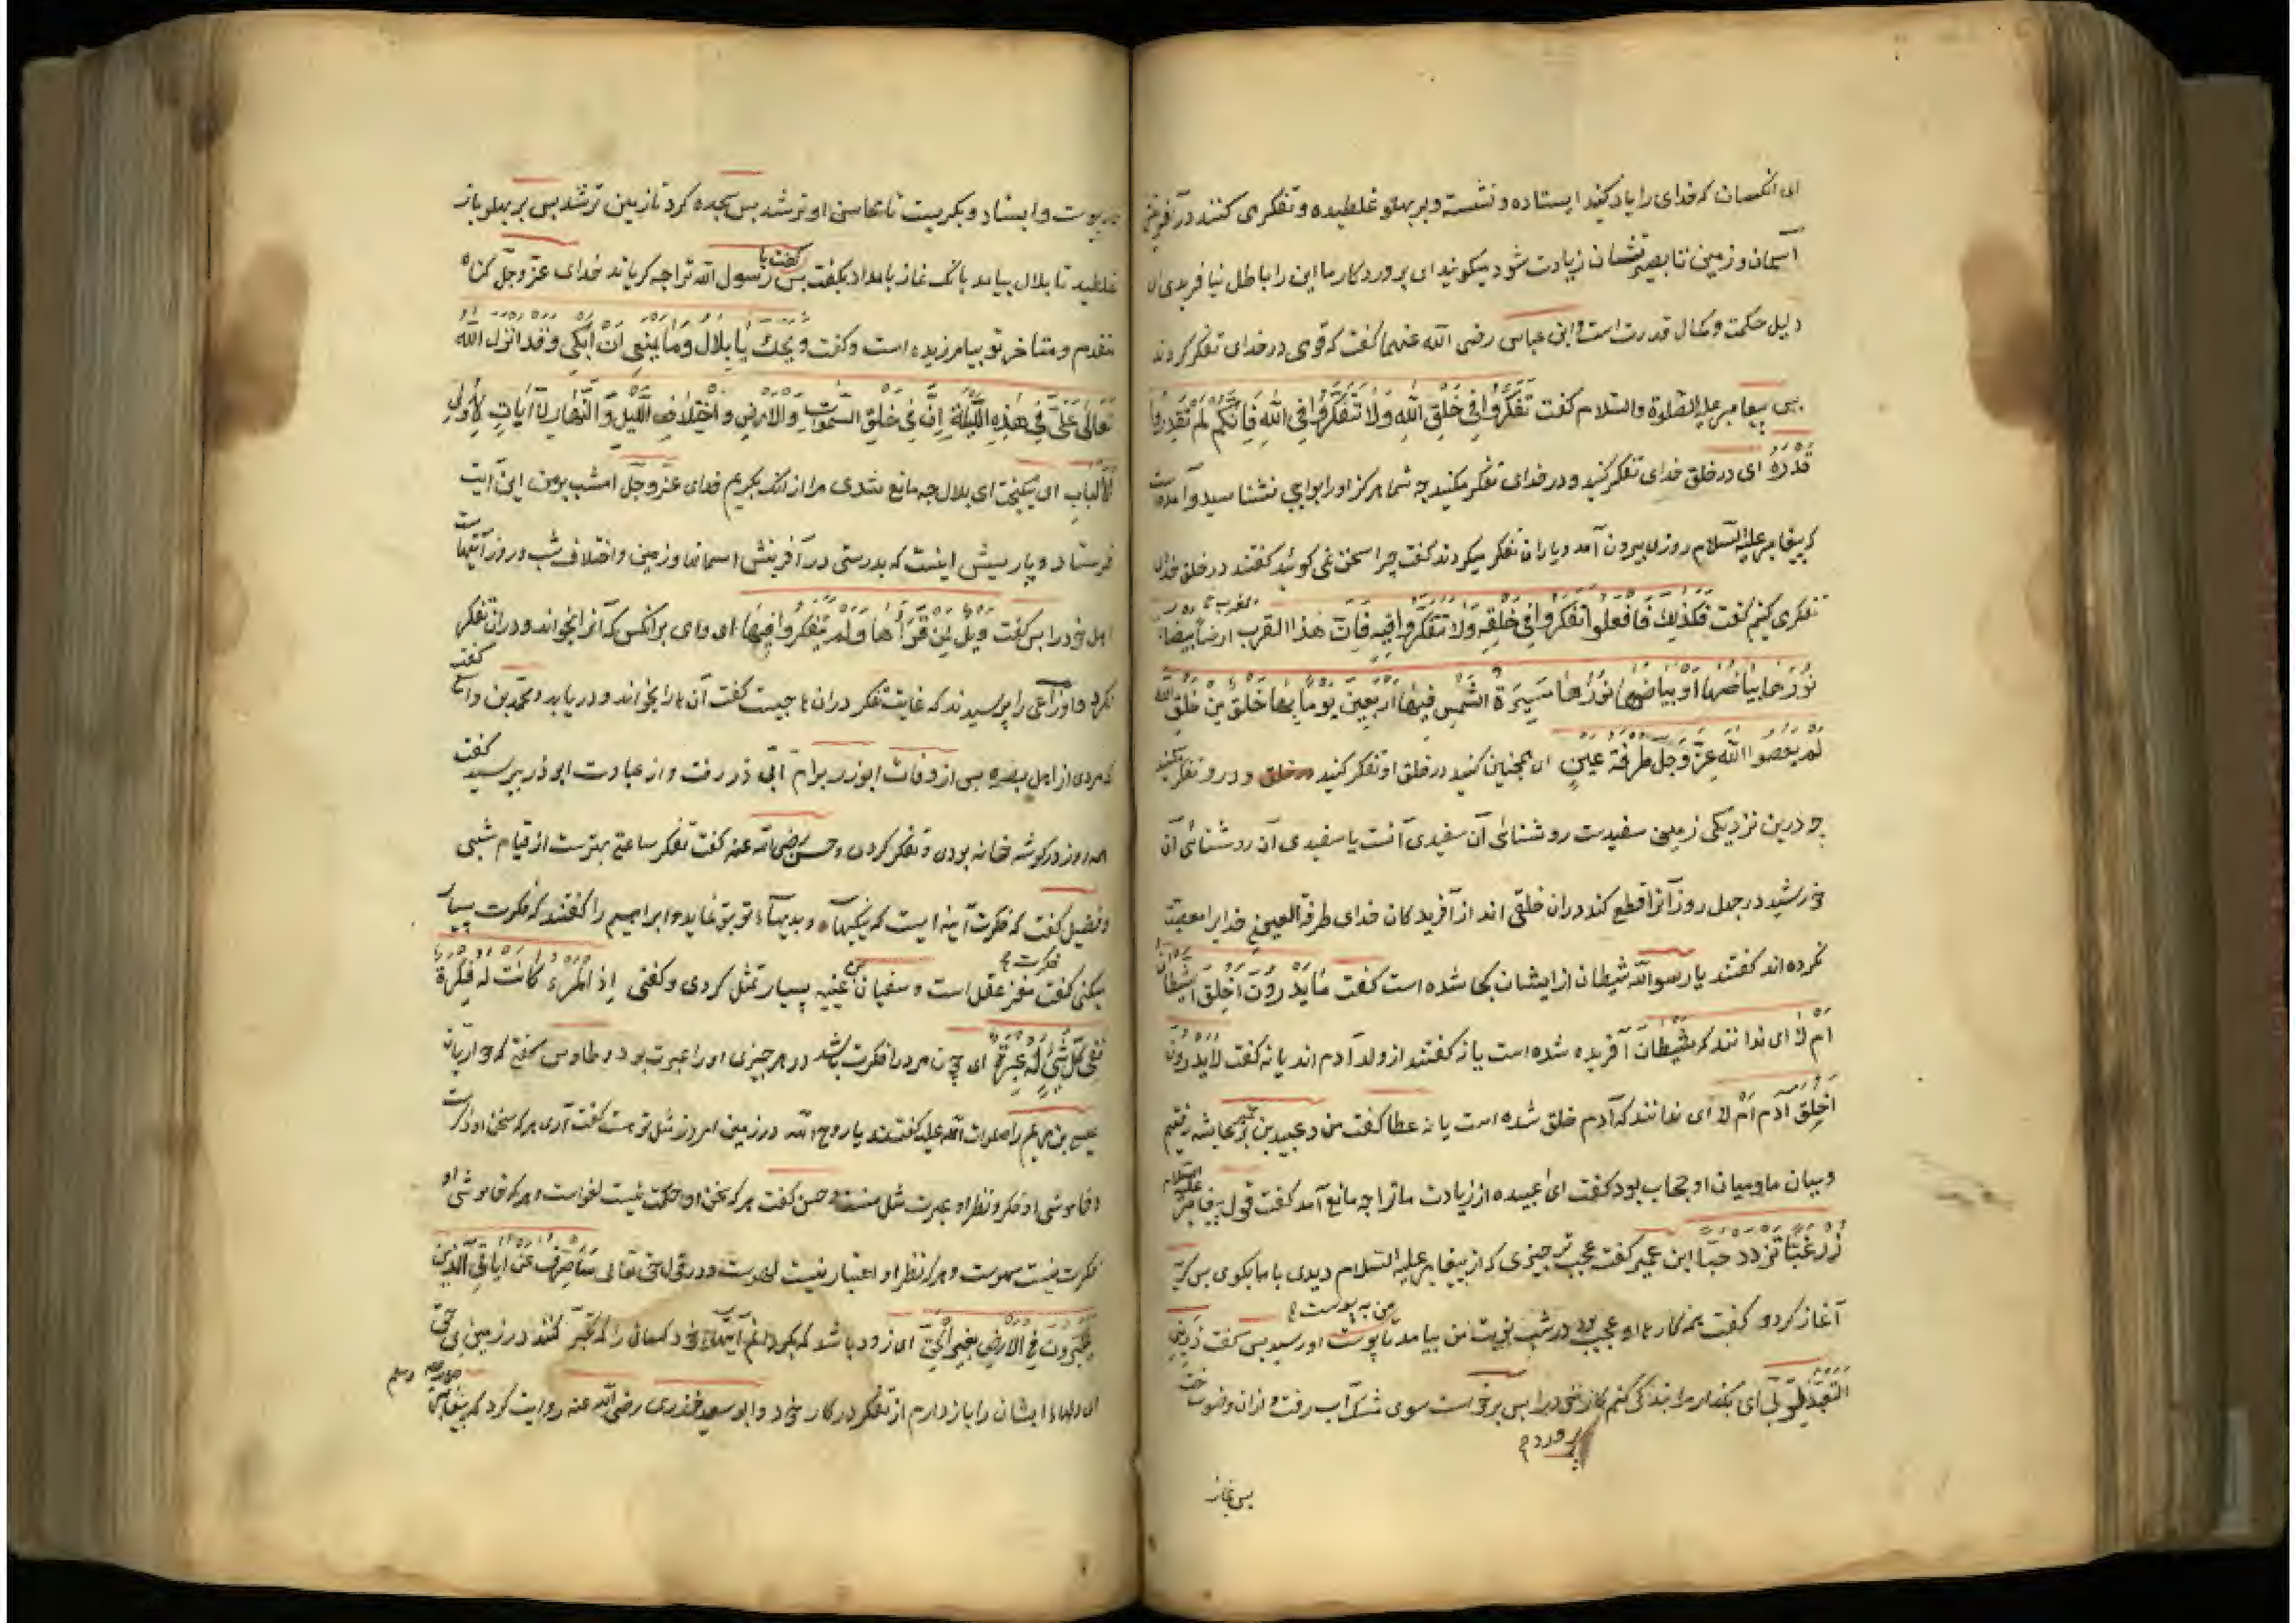 ای انکسان که خدای را یاد کنند ایستاده و نشسته و بر بهلو غلطیده و تفکر می کنند در آفرینش
آسمان و زمین تا بصیرتشان زیادت شود میکویند ای پروردکار ما این را باطل نیافریدی ای
دلیل حکمت و کمال قدرت است و ابن عباس رضی الله عنهما کفت که قومی در خدای تفکر کردند
بس پیغامبر علیه الصلوة والسلام کفت تَفَكَّرُوا فِي خَلْقِ اللهِ وَلَا تَتَفَكَّرُوا فِي اللهِ فَاِنَّكُمْ لَمْ تَقْدِرُوا
قَدْرَهُ ای در خلق خدای تفکر کنید و در خدای تفکر مکنید چه شما هرکز او را بواجبی نشناسید و آمده است
که پیغامبر علیه السلام روزی بیرون آمد و یاران تفکر میکردند کفت چرا سخن نمی کوئید کفتند در خلق خدای
تفکری کنیم کفت فَكَذٰلِكَ فَافْعَلُوا تَفَكَّرُوا فِي خَلْقِهِ وَلَا تَتَفَكَّرُوا فِيهِ فَاِنَّ هٰذَا القرب ارضا بيضاء
نُوْرُهَا بَيَاضُهَا اَوْ بَيَاضُهَا نُوْرُهَا مَسِيْرَةُ الشَّمْسِ فِيْهَا اَرْبَعِيْنَ يَوْمًا بِهَا خَلْقٌ مِنْ خَلْقِ الله
لَمْ يَعْصُوا اللهَ عَزَّ وَجَلَّ طَرْفَةَ عَيْنٍ ای همچنین کنید در خلق او تفکر کنید در خلق و درو تفکر مکنید
چه درین نزدیکی زمینی سفیدست روشنائی آن سفیدی آنست یا سفیدی آن روشنائی آن
خورشید در چهل روز آنرا قطع کند دران خلقی اند از آفریدکان خدای طرفة العینی خدایرا معصیت
نکرده اند کفتند یا رسول الله شیطان از ایشان کجا شده است کفت مَا يَدْرُوْنَ اَخُلِقَ الشيطان
اَمْ لَا ای ندانند که شیطان آفریده شده است یا نه کفتند از ولد آدم اند یا نه کفت لَا يَدْرُوْنَ
اَخُلِقَ آدَمُ اَمْ لَا ای ندانند که آدم خلق شده است یا نه عطا کفت من و عبید بن عمیر بر عایشه رفتیم
و میان ما و میان او حجاب بود کفت ای عبیده از زیادت ما ترا چه مانع آمد کفت قول پیغامبر علیه السلام
زُرْ غِبًّا تَزْدَدْ حُبًّا ابن عمیر کفت عجب تر چیزی که از پیغامبر علیه السلام دیدی با ما بکوی بس کریه
آغاز کرد و کفت همه کارهاء او عجیب بود در شب نوبت من بیامد تا پوست من به پوست او رسید بس کفت ذَرِيْنِي
اَتَعَبَّدُ لِرَبِّي ای بکذار مرا بندکی کنم کار خود را بس برخاست سوی مشک آب رفت و ازان وضو ساخت
پروردم
بس نماز
به پیوست و ایستاد و بکریست تا محاسن او تر شد بس سجده کرد تا زمین تر شد بس بر بهلو باز
غلطید تا بلال بیامد بانک نماز بامداد بکفت بس کفت یا رسول الله ترا چه کریاند خدای عز و جل کناه
متقدم و متاخر تو بیامرزیده است و کفت وَيْحَكَ يَا بِلَالُ وَمَا يَمْنَعُنِي اَنْ اَبْكِي وَقَدْ اَنْزَلَ اللهُ
تَعَالٰى عَلَيَّ فِي هٰذِهِ اللَّيْلَةِ اِنَّ فِي خَلْقِ السَّمٰوَاتِ وَالْاَرْضِ وَاخْتِلَافِ اللَّيْلِ وَالنَّهَارِ لَآيَاتٍ لِاُولِي
الْاَلْبَابِ ای نیکبخت ای بلال چه مانع شدی مرا از انکه بکریم خدای عز و جل امشب بر من این آیت
فرستاد و پارسیش اینست که بدرستی در آفرینش اسمانها و زمین و اختلاف شب و روز آیتهاست
اهل خرد را بس کفت وَيْلٌ لِمَنْ قَرَأَهَا وَلَمْ يَتَفَكَّرْ فِيْهَا ای وای برانکس که آنرا بخواند و دران تفکر
نکرد و اوزاعی را پرسیدند که غایت تفکر دران ها چیست کفت آن ها را بخواند و دریابد و محمد بن واسع کفت
که مردی از اهل بصره بس از وفات ابوذر بر ام ابی ذر رفت و از عبادت ابوذر بپرسید کفت
همه روز در کوشه خانه بودی و تفکر کردی و حسن رضی الله عنه کفت تفکر ساعتی بهترست از قیام شبی
و فضیل کفت که فکرت آینه ایست که نیکیهاء و بدیهاء تو بتو نماید و ابراهیم را کفتند که فکرت بسیار
میکنی کفت فکرت مغز عقل است و سفیان بن عیینه بسیار تمثل کردی و کفتی اِذَا الْمَرْءُ كَانَتْ لَهُ فِكْرَةٌ
فَفِي كُلِّ شَيْءٍ لَهُ عِبْرَةٌ ای چون مرد را فکرت باشد در هر چیزی او را عبرت بود و طاوس کفت که حواریان
عیسی بن مریم را صلوات الله علیه کفتند یا روح الله در زمین امروز مثل تو هست کفت آری هر که سخن او ذکرست
و خاموشی او فکر و نظر او عبرت مثل منست و حسن کفت هر که سخن او حکمت نیست لغوست و هر که خاموشی او
فکرت نیست سهوست و هر که نظر او اعتبار نیست لهوست و در قول حق تعالی سَاَصْرِفُ عَنْ اٰيَاتِيَ الَّذِيْنَ
يَتَكَبَّرُوْنَ فِي الْاَرْضِ بِغَيْرِ الْحَقِّ ای زود باشد که بکردانم از آیتهاء خود کسانی را که تکبر کنند در زمین بی حق
ای دلهاء ایشان را باز دارم از تفکر در کار خود و ابو سعید خدری رضی الله عنه روایت کرد که پیغامبر صلی الله علیه و سلم